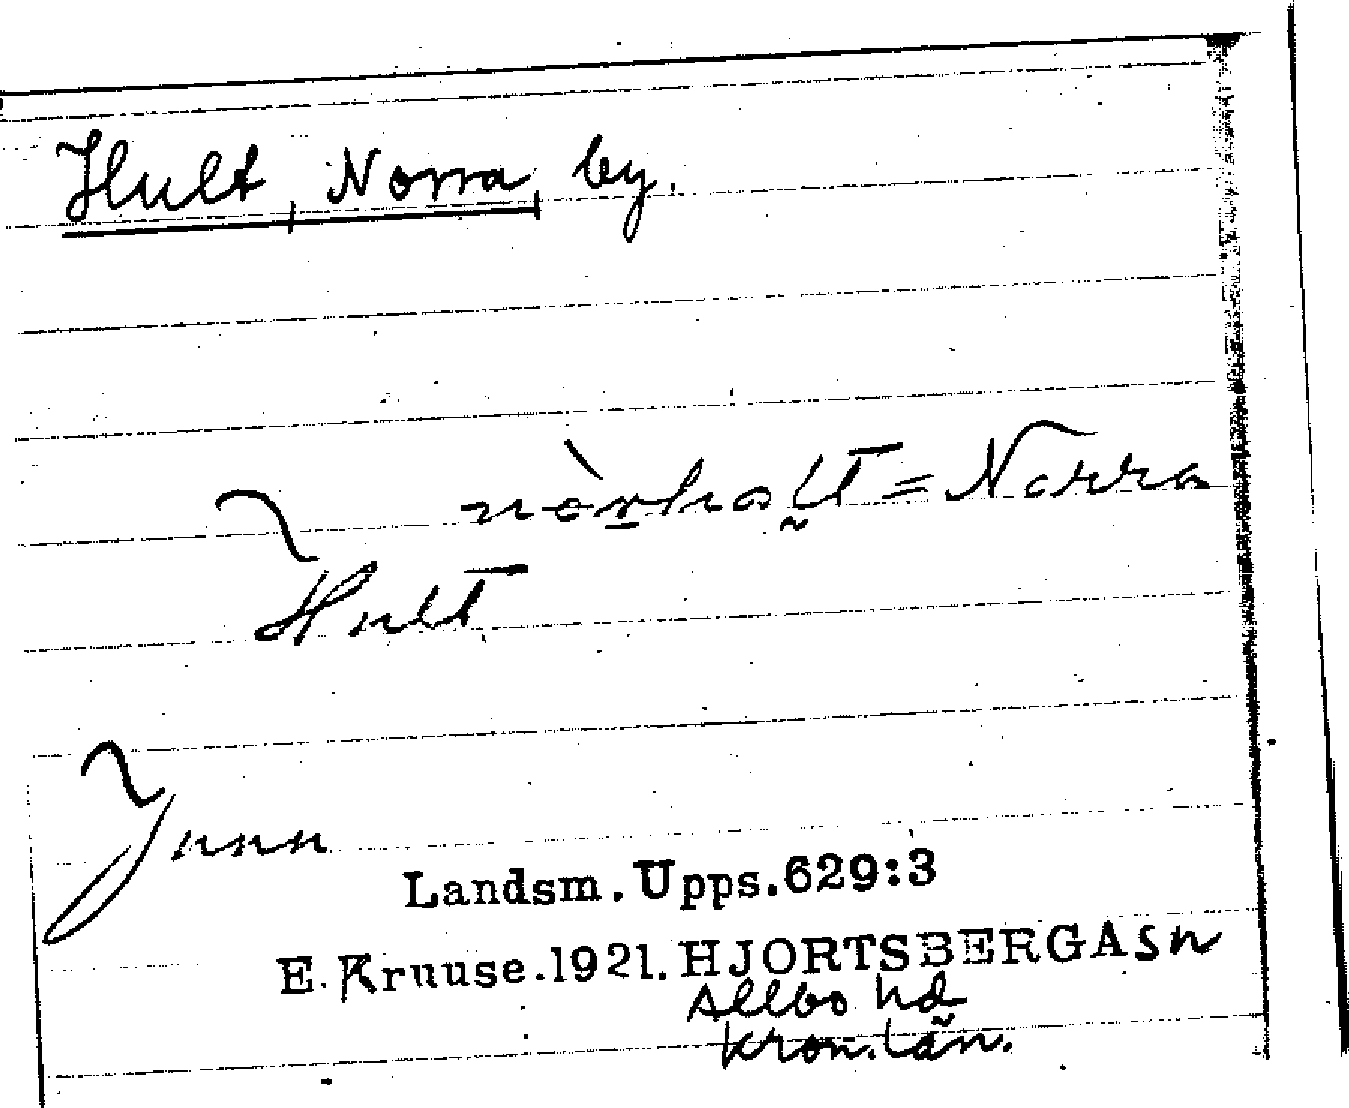 Hult, Norra, by.
= Norra
Hult
Landsm. Upps. 629:3
E. Kruuse. 1921. HJORTSBERGA sn
Allbo hd
Kron. län.